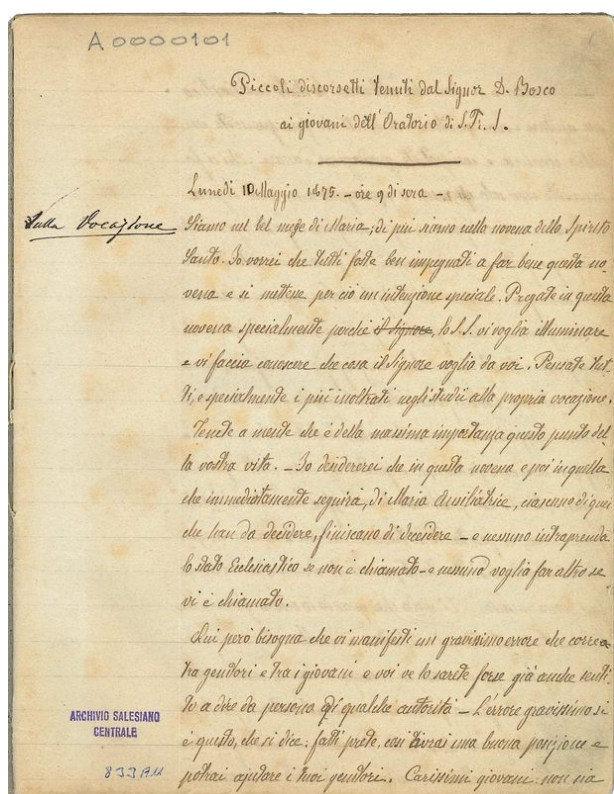 A0000101
Piccoli discorsetti tenuti dal Signor D. Bosco
ai giovani dell'Oratorio di S. Fr. S.
Lunedì 10 Maggio 1875. - ore 9 di sera -
Sulla Vocazione
Siamo nel bel mese di Maria; di più siamo nella novena dello Spirito
Santo. Io vorrei che tutti foste ben impegnati a far bene questa no
vena e si mettesse per ciò un'intenzione speciale. Pregate in questa
novena specialmente perché il Signore, lo S.S. vi voglia illuminare
e vi faccia conoscere che cosa il Signore voglia da voi. Pensate tut-
ti, e specialmente i più inoltrati negli studii alla propria vocazione.
Tenete a mente che è della massima importanza questo punto del
la vostra vita. - Io desidererei che in questa novena e poi in quella
che immediatamente seguirà, di Maria Ausiliatrice, ciascuno di quei
che han da decidere, finiscano di decidere - e nessuno intraprenda
lo stato Ecclesiastico se non è chiamato - e nessuno voglia far altro se
vi è chiamato.
Qui però bisogna che vi manifesti un gravissimo errore che corre
tra genitori e tra i giovani e voi ve lo sarete forse già anche senti
to a dire da persona di qualche autorità - L'errore gravissimo si
è questo, che si dice: fatti prete, così avrai una buona posizione e
potrai ajutare i tuoi genitori. Carissimi giovani: non sia
ARCHIVIO SALESIANO
CENTRALE